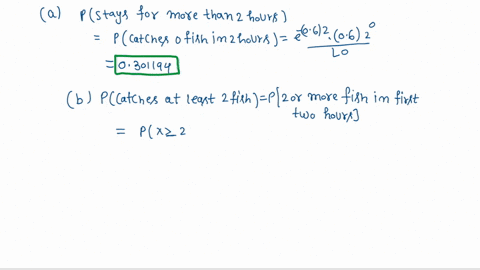 (a) P(stays for more than 2 hours)
= P(catches 0 fish in 2 hours) = e^-(0.6)2 . (0.6) 2^0 / L0
= 0.301194
(b) P(catches at least 2 fish) = P[2 or more fish in first two hours]
= P(x ≥ 2